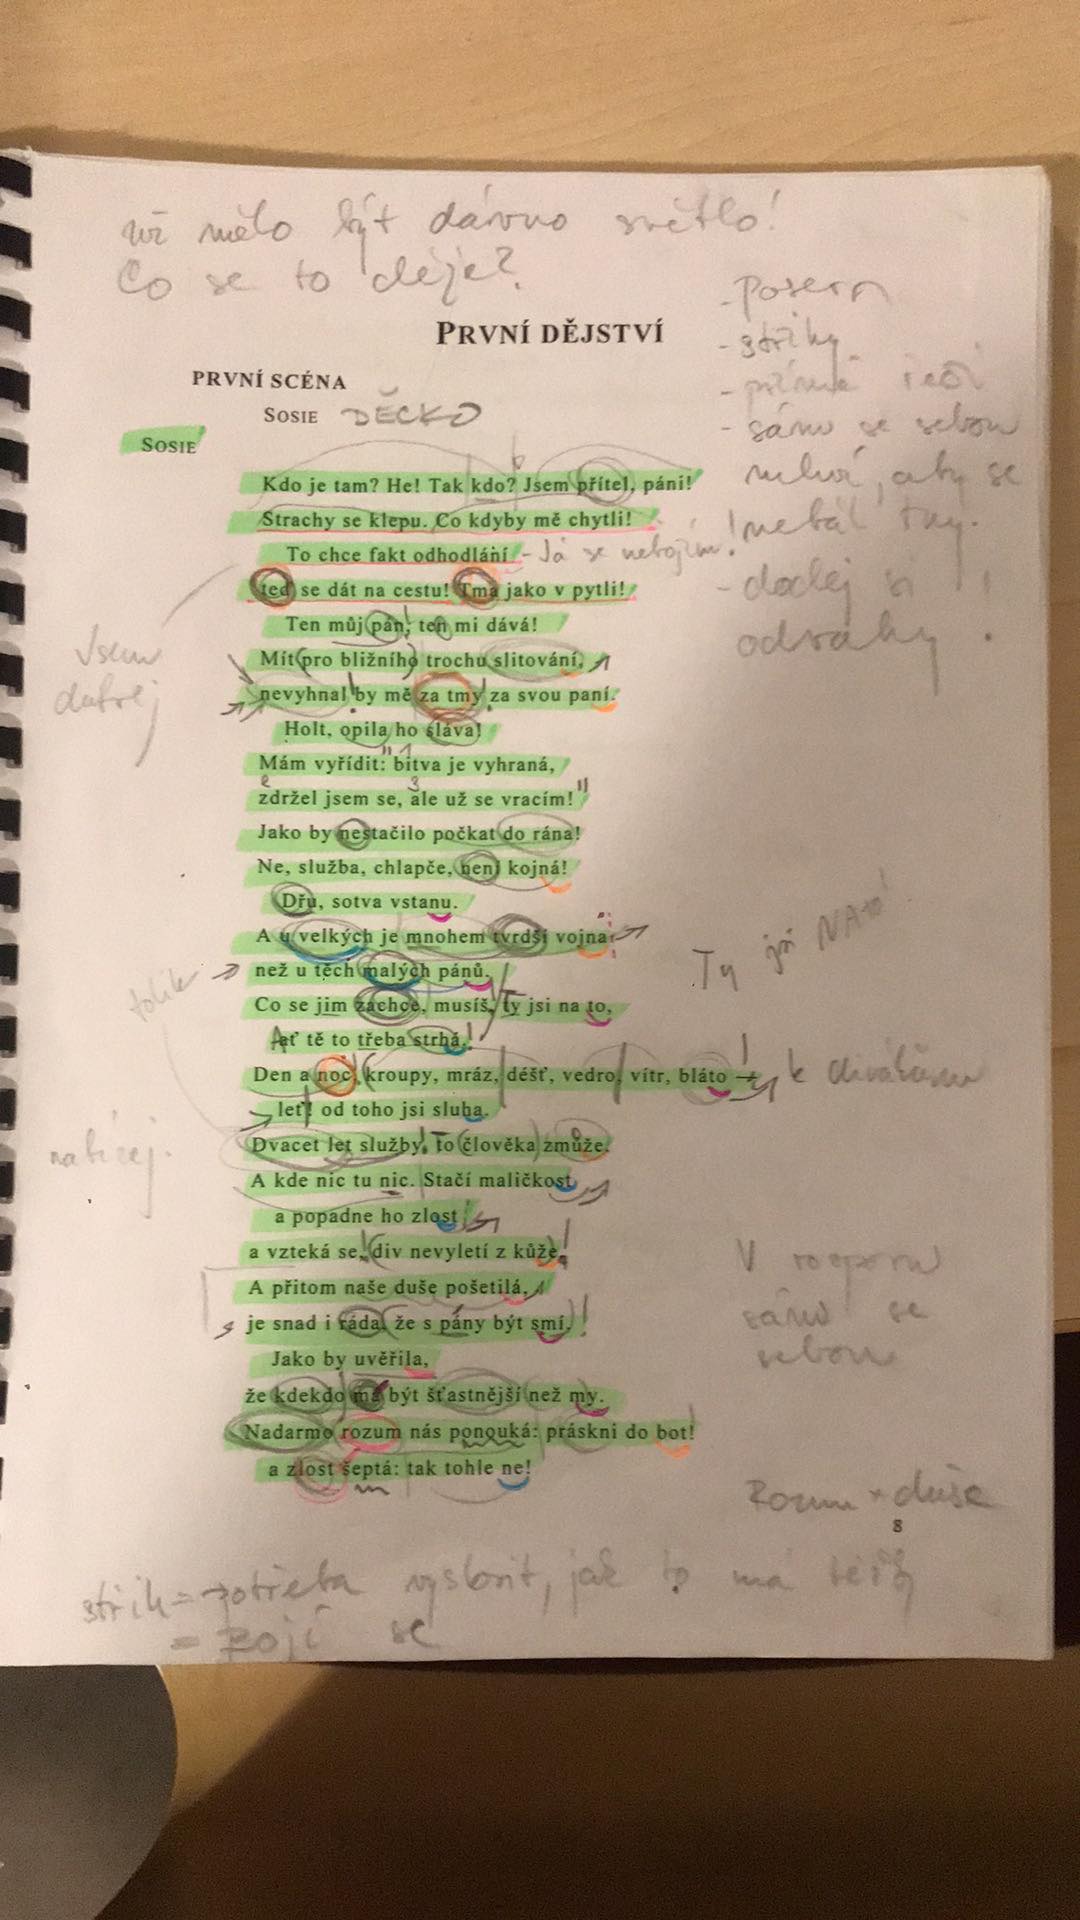 už mělo být dávno světlo!
Co se to děje?
PRVNÍ DĚJSTVÍ
PRVNÍ SCÉNA
SOSIE DĚCKO
SOSIE
- strihy
- přímá řeč
- sám se sebou
mluví, aby se
nebál tmy.
- dodej si
odvahy !
Kdo je tam? He! Tak kdo? Jsem přítel, páni!
Strachy se klepu. Co kdyby mě chytli!
To chce fakt odhodlání - Já se nebojím!
teď se dát na cestu! Tma jako v pytli!
Ten můj pán, ten mi dává!
Mít pro bližního trochu slitování,
nevyhnal by mě za tmy za svou paní.
Holt, opila ho sláva!
Mám vyřídit: "bitva je vyhraná,
zdržel jsem se, ale už se vracím!"
Jako by nestačilo počkat do rána!
Ne, služba, chlapče, není kojná!
Dřu, sotva vstanu.
A u velkých je mnohem tvrdší vojna
než u těch malých pánů.
Co se jim zachce, musíš, ty jsi na to,
Ať tě to třeba strhá!
Den a noc, kroupy, mráz, déšť, vedro, vítr, bláto
leť! od toho jsi sluha.
Dvacet let služby! to člověka zmůže.
A kde nic tu nic. Stačí maličkost
a popadne ho zlost
a vzteká se, div nevyletí z kůže,
A přitom naše duše pošetilá,
je snad i ráda, že s pány být smí.
Jako by uvěřila,
že kdekdo má být šťastnější než my.
Nadarmo rozum nás ponouká: práskni do bot!
a zlost šeptá: tak tohle ne!
Ty jsi NAto!
k divákům
V rozporu
sám se
sebou
Rozum + duše
8
střih = potřeba vyslovit, jak to má
= bojí se